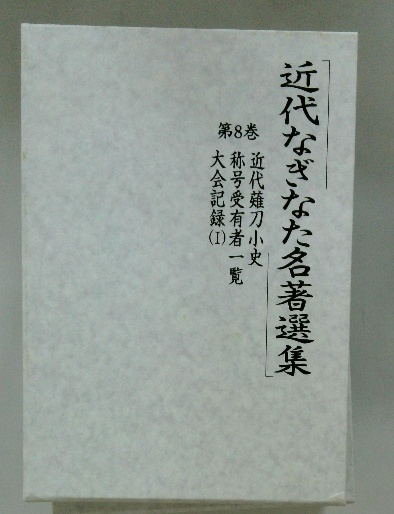 近代なぎなた名著選集
第8巻
近代薙刀小史
称号受有者一覧
大会記録(I)